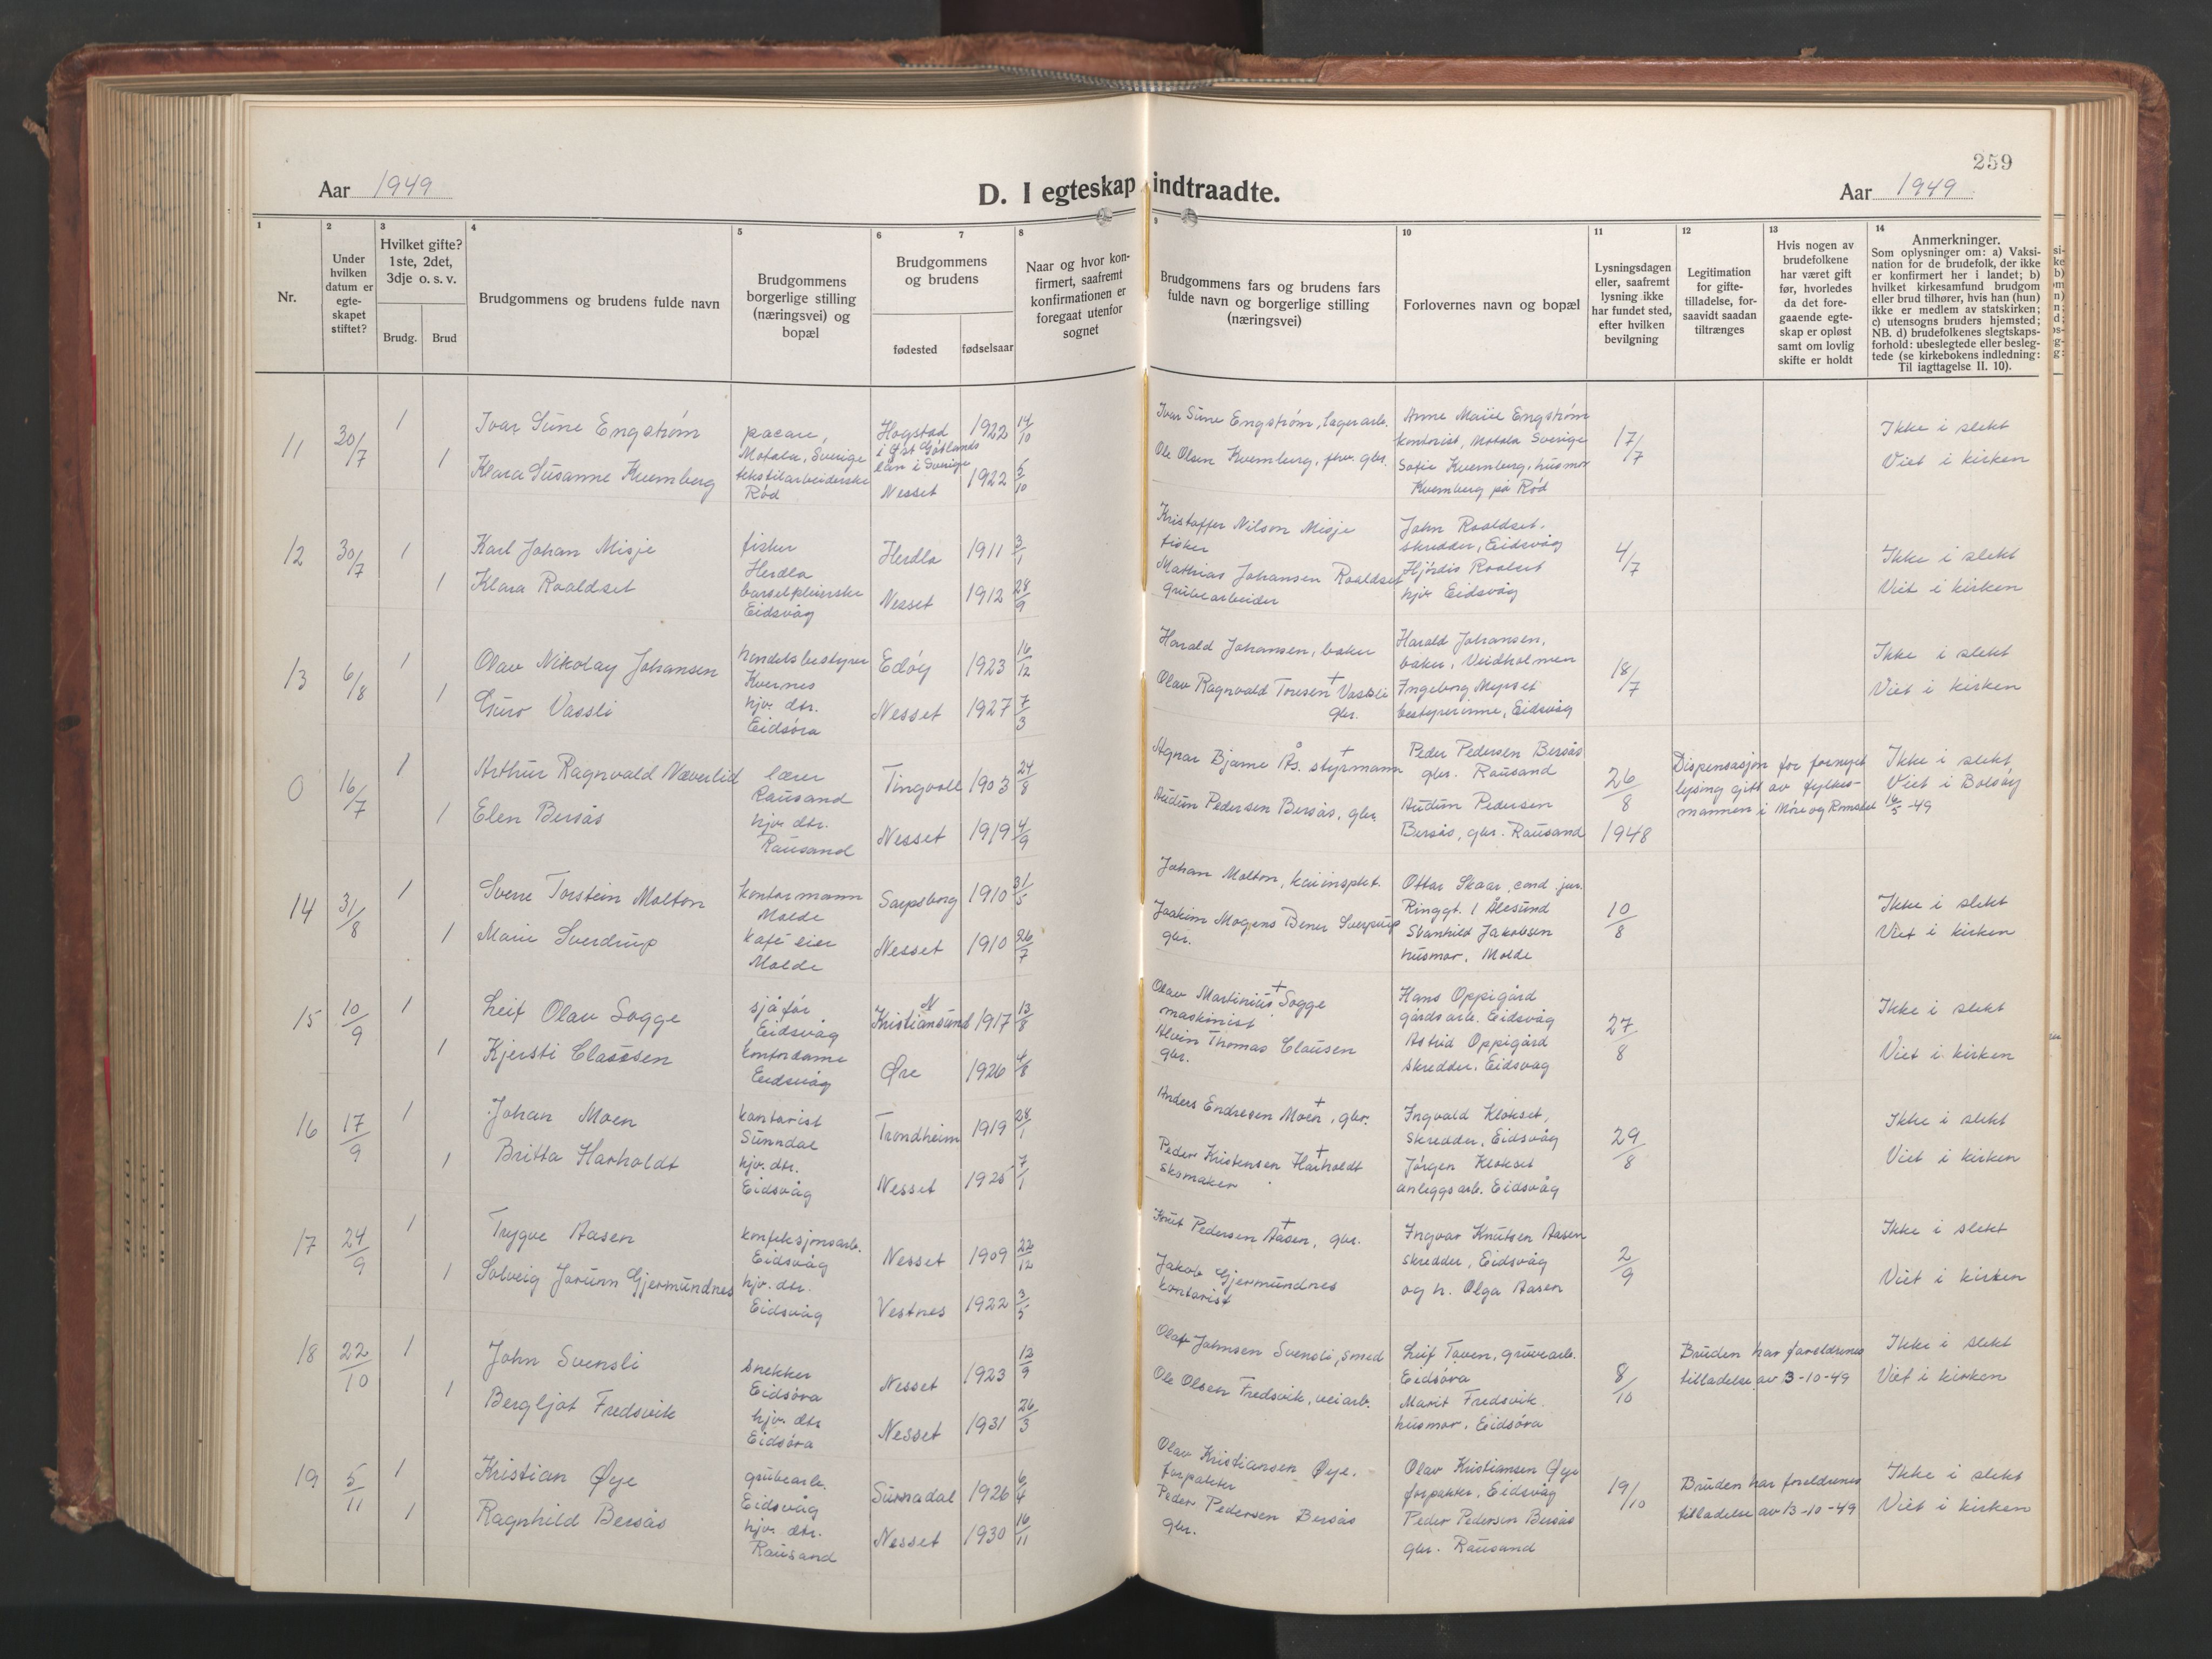 259
Aar 1949
D. I egteskap indtraadte.
Aar 1949
1
Nr.
2
Under
hvilken
datum er
egte-
skapet
stiftet?
3
Hvilket gifte?
1ste, 2det,
3dje o. s. v.
Brudg.
Brud
4
Brudgommens og brudens fulde navn
5
Brudgommens
borgerlige stilling
(næringsvei) og
bopæl
6
7
Brudgommens
og brudens
fødested
fødselsaar
8
Naar og hvor kon-
firmert, saafremt
konfirmationen er
foregaat utenfor
sognet
9
Brudgommens fars og brudens fars
fulde navn og borgerlige stilling
(næringsvei)
10
Forlovernes navn og bopæl
11
Lysningsdagen
eller, saafremt
lysning ikke
har fundet sted,
efter hvilken
bevilgning
12
Legitimation
for gifte-
tilladelse, for-
saavidt saadan
tiltrænges
13
Hvis nogen av
brudefolkene
har været gift
før, hvorledes
da det fore-
gaaende egte-
skap er opløst
samt om lovlig
skifte er holdt
14
Anmerkninger.
Som oplysninger om: a) Vaksi-
nation for de brudefolk, der ikke
er konfirmert her i landet; b)
hvilket kirkesamfund brudgom
eller brud tilhører, hvis han (hun)
ikke er medlem av statskirken;
c) utensogns bruders hjemsted;
NB. d) brudefolkenes slegtskaps-
forhold: ubeslegtede eller besleg-
tede (se kirkebokens indledning:
Til iagttagelse II. 10).
11 30/7 1 Ivar Sune Engstrøm
1 Klara Susanne Kvernberg
pacare,
Motala, Sverige
tekstilarbeiderske
Rød
Hogstad 1922 14/10
i Øst Götlands
län i Sverige
Nesset 1922 5/10
Ivar Sune Engstrøm, lagerarb.
Ole Olsen Kvernberg, fhv. gbr.
Anne Maiie Engstrøm
kontorist, Motala Sverige
Sofie Kvernberg, husmor
Kvernberg på Rød
17/7
Ikke i slekt
Viet i kirken
12 30/7 1 Karl Johan Misje
1 Klara Roaldset
fisker
Herdla
barselpleierske
Eidsvåg
Herdla 1911 3/1
Nesset 1912 28/9
Kristoffer Nilson Misje
fisker
Mathias Johansen Roaldset
grubearbeider
John Roaldset.
skredder, Eidsvåg
Hjørdis Roalset
hjv. Eidsvåg
4/7
Ikke i slekt
Viet i kirken
13 6/8 1 Olav Nikolay Johansen
1 Guro Vassli
handelsbestyrer
Kvernes
hjv. dtr.
Eidsøra
Edøy 1923 16/12
Nesset 1927 7/3
Harald Johansen, baker
Olav Ragnvald Toresen + Vassli
gbr.
Harald Johansen,
baker, Veidholmen
Ingeborg Myrset
bestyrerinne, Eidsvåg
18/7
Ikke i slekt
Viet i kirken
0 16/7 1 Arthur Ragnvald Neverlid
1 Elen Bersås
lærer
Rausand
hjv. dtr.
Rausand
Tingvoll 1903 24/8
Nesset 1919 4/9
Agnar Bjarne Ås. + styrmann
Audun Pedersen Bersås, gbr.
Peder Pedersen Bersås
gbr. Rausand
Audun Pedersen
Bersås, gbr. Rausand
26/8
1948
Dispensasjon for fornyet
lysing gitt av fylkes-
mannen i Møre og Romsdal 16/5 -49
Ikke i slekt
Viet i Bolsøy
14 31/8 1 Sverre Torstein Molton
1 Marie Sverdrup
kontormann
Molde
kafé eier
Molde
Sarpsborg 1910 31/5
Nesset 1910 26/7
Johan Molton, kaiinspkt.
Joakim Mogens Bener Sverdrup
gbr.
Ottar Skaar, cand. jur.
Ringgt. 1 Ålesund
Svanhild Jakobsen
husmor, Molde
10/8
Ikke i slekt
Viet i kirken
15 10/9 1 Leif Olav Sogge
1 Kjersti Clausen
sjåfør
Eidsvåg
kontordame
Eidsvåg
Kristiansund N 1917 13/8
Øre 1926 4/8
Olav Martinius + Sogge
maskinist
Alvin Thomas Clausen
gbr.
Hans Oppigård
gårdsarb. Eidsvåg
Astrid Oppigård
skredder, Eidsvåg
27/8
Ikke i slekt
Viet i kirken
16 17/9 1 Johan Moen
1 Britta Harholdt
kontorist
Sunndal
hjv. dtr.
Eidsvåg
Trondheim 1919 28/1
Nesset 1925 7/1
Anders Endresen Moen +, gbr.
Peder Kristensen Harholdt +
skomaker
Ingvald Klokset,
skredder, Eidsvåg
Jørgen Klokset
anleggsarb. Eidsvåg
29/8
Ikke i slekt
Viet i kirken
17 24/9 1 Trygve Aasen
1 Solveig Jorunn Gjermundnes
konfeksjonsarb.
Eidsvåg
hjv. dtr.
Eidsvåg
Nesset 1909 22/12
Vestnes 1922 3/5
Knut Pedersen Aasen +, gbr.
Jakob Gjermundnes
kontorist
Ingvar Knutsen Aasen
skredder, Eidsvåg
og h. Olga Aasen
2/9
Ikke i slekt
Viet i kirken
18 22/10 1 John Svensli
1 Bergljot Fredsvik
snekker
Eidsøra
hjv. dtr
Eidsøra
Nesset 1923 12/9
Nesset 1931 26/3
Olaf Johnsen Svensli, smed
Ole Olsen Fredsvik, veiarb.
Leif Toven, gruvearb.
Eidsøra
Marit Fredsvik
husmor, Eidsøra
8/10
Bruden har foreldrenes
tilladelse av 3-10-49
Ikke i slekt
Viet i kirken
19 5/11 1 Kristian Øye
1 Ragnhild Bersås
grubearb.
Eidsvåg
hjv. dtr.
Rausand
Surnadal 1926 6/4
Nesset 1930 16/11
Olav Kristiansen Øye.
forpakter
Peder Pedersen Bersås
gbr.
Olav Kristiansen Øye
forpakter, Eidsvåg
Peder Pedersen Bersås
gbr. Rausand
19/10
Bruden har foreldrenes
tilladelse av 13-10-49
Ikke i slekt
Viet i kirken